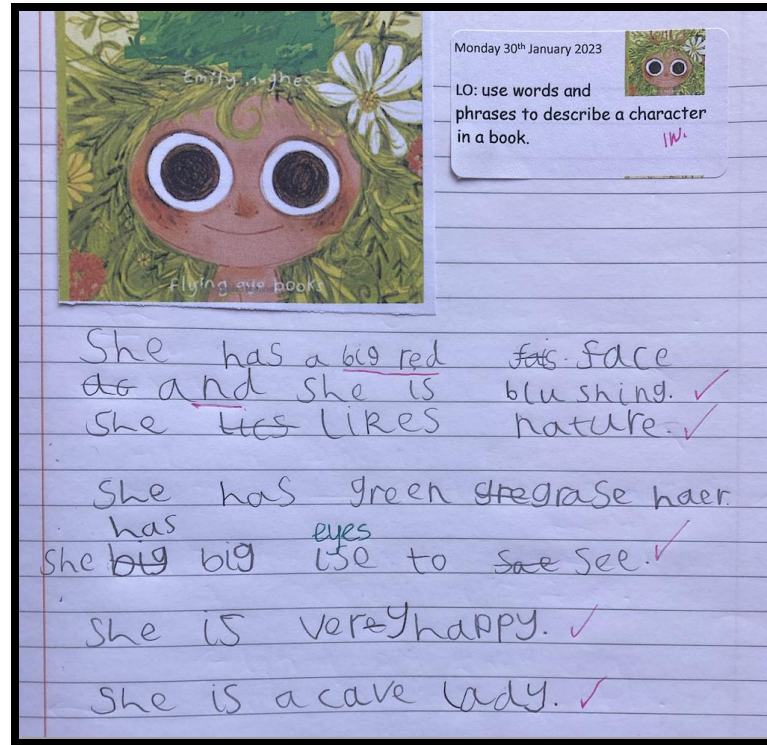 Emily Hughes
flying eye books
Monday 30th January 2023
LO: use words and
phrases to describe a character
in a book.
IW.
She has a big red fais. face
do and she is blushing.
She lics likes nature.
She has green gre grase haer.
has eyes
She big big ise to sae see.
She is verey happy.
She is a cave lady.